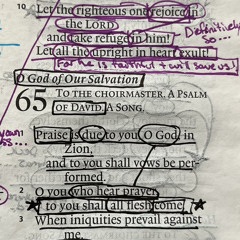 10 Let the righteous one rejoice in
the LORD
and take refuge in him!
Definitively
so...
Let all the upright in heart exult!
For he is faithful + will save us!
O God of Our Salvation
65 TO THE CHOIRMASTER. A PSALM
OF DAVID. A SONG.
Praise is due to you, O God, in
Zion,
and to you shall vows be per-
formed.
2 O you who hear prayer,
to you shall all flesh come.
3 When iniquities prevail against
me,